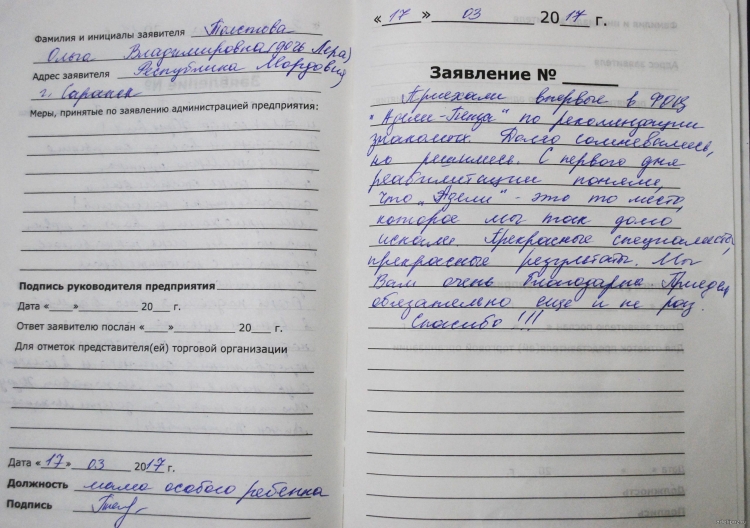 Фамилия и инициалы заявителя Толстова
Ольга Владимировна (дочь Лера)
Адрес заявителя Республика Мордовия
г. Саранск
Меры, принятые по заявлению администрацией предприятия:
Подпись руководителя предприятия
Дата «___» ________ 20___ г.
Ответ заявителю послан «___» ________ 20___ г.
Для отметок представителя(ей) торговой организации
Дата «17» 03 2017 г.
Должность мама особого ребенка
Подпись
«17» 03 2017 г.
Заявление № ____
Приехали впервые в ФОЦ
"Адели-Пенза" по рекомендации
знакомых. Долго сомневались,
но решились. С первого дня
реабилитации поняли,
что "Адели" - это то место,
которое мы так долго
искали. Прекрасные специалисты,
прекрасные результаты. Мы
Вам очень благодарны. Приедем
обязательно еще и не раз.
Спасибо!!!